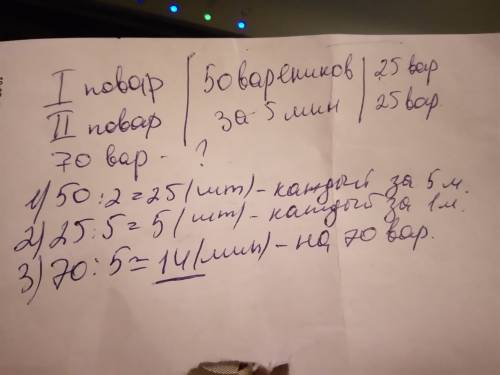 I повар | 50 вареников | 25 вар
II повар | за 5 мин | 25 вар.
70 вар - ?
1) 50 : 2 = 25 (шт) - каждый за 5 м.
2) 25 : 5 = 5 (шт) - каждый за 1 м.
3) 70 : 5 = 14 (мин) - на 70 вар.